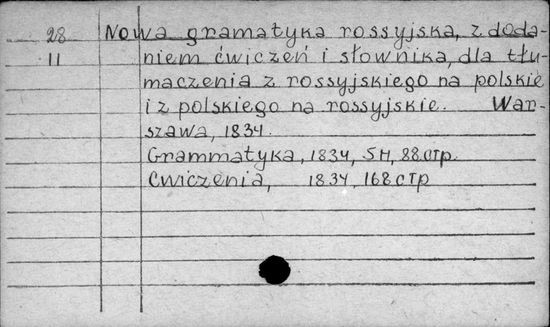 28 Nowa gramatyka rossyjska, z doda-
11 niem ćwiczeń i słownika, dla tłu-
maczenia z rossyjskiego na polskie
i z polskiego na rossyjskie. War-
szawa, 1834.
Grammatyka, 1834, 5H, 88 стр.
Cwiczenia, 1834, 168 стр